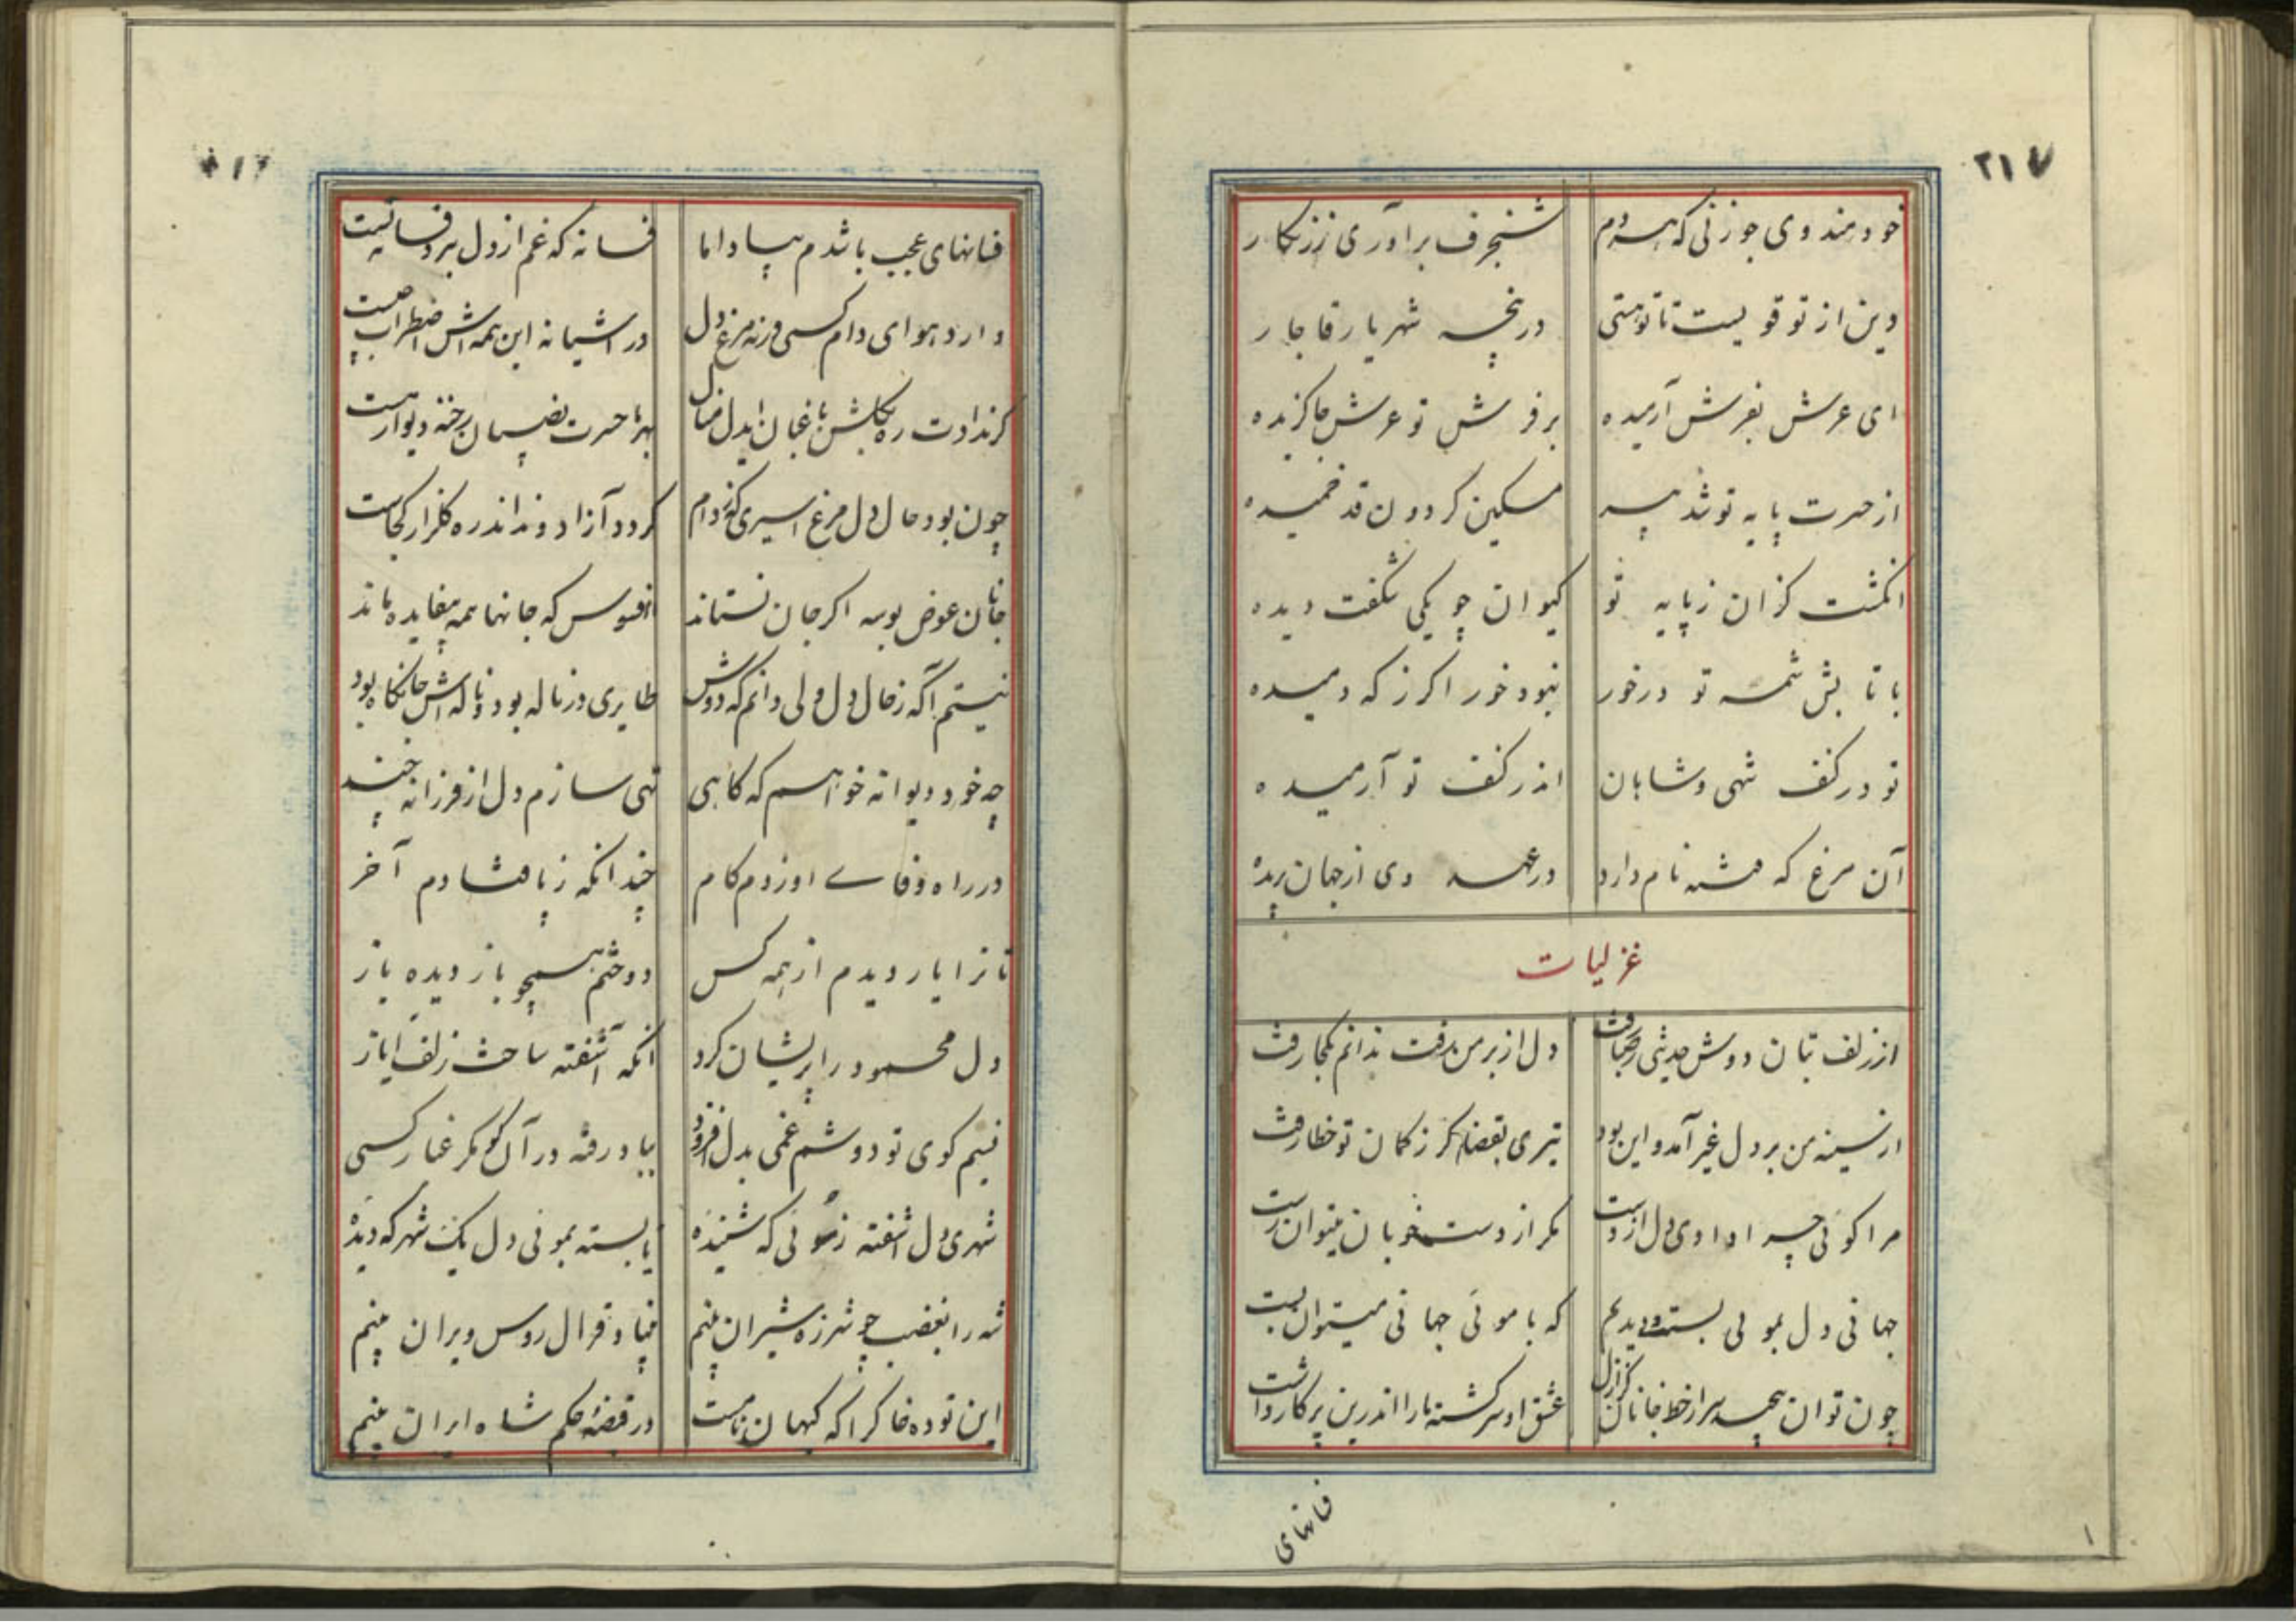 ۲۱۷
خود هندوی جوزنی که هر دم
شنجرف برآوری ز زنگار
دین از تو قویست تا تو هستی
در پنجه شهریار قاجار
ای عرش بفرش آرمیده
بر فرش تو عرش جا گزیده
از حسرت پایه تو شد پیر
مسکین گردون قد خمیده
انگشت گزان ز پایه تو
کیوان چو یکی شگفت دیده
با تابش شمسه تو درخور
نبود خور اگر ز که دمیده
تو در کنف شهی و شاهان
اندر کنف تو آرمیده
آن مرغ که فتنه نام دارد
در عهد وی از جهان پریده
غزلیات
از زلف بتان دوش حدیثی بصبا رفت
دل از بر من رفت ندانم بکجا رفت
از سینه من بر دل غیر آمد و این بود
تیری بقضا کز کمان تو خطا رفت
مرا گوئی چرا دادی دل از دست
مگر از دست خوبان میتوان رست
جهانی دل بموئی بست و دیدیم
که با موئی جهانی میتوان بست
چون توان پیچید سر از خط جانان کز ازل
عشق او سرگشته ما را اندرین پرگار داشت
فسانهای
فسانهای عجب باشدم بیاد اما
فسانه که غم از دل برد فسانه تست
دارد هوای دام کسی ورنه مرغ دل
در آشیانه این همه‌اش اضطراب چیست
گر ندادت ره بگلشن باغبان ایدل منال
بهر ما حسرت نصیبان رخنه دیوار هست
چون بود حال دل مرغ اسیری که ز دام
گردد آزاد و نداند ره گلزار کجاست
جانان عوض بوسه اگر جان نستاند
افسوس که جانها همه بیفایده ماند
نیستم آگه ز حال دل ولی دانم که دوش
طایری در ناله بود و ناله‌اش جانکاه بود
چه خود دیوانه خواهم که گاهی
تهی سازم دل از فرزانه چند
در راه وفای او زدم گام
چندانکه ز پا فتادم آخر
تا ترا یار دیدم از همه کس
دوختم همچو باز دیده باز
دل محمود را پریشان کرد
آنکه آشفته ساخت زلف ایاز
نسیم کوی تو دوشم غمی بدل افزود
بباد رفته در آن کو مگر غبار کسی
شهری دل آشفته ز موئی که شنیده
پا بسته بموئی دل یک شهر که دیده
شه را بغضب چو شرزه شیران بینم
بنیاد قرال روس ویران بینم
این توده خاک را که کیهان نامست
در قبضه حکم شاه ایران بینم